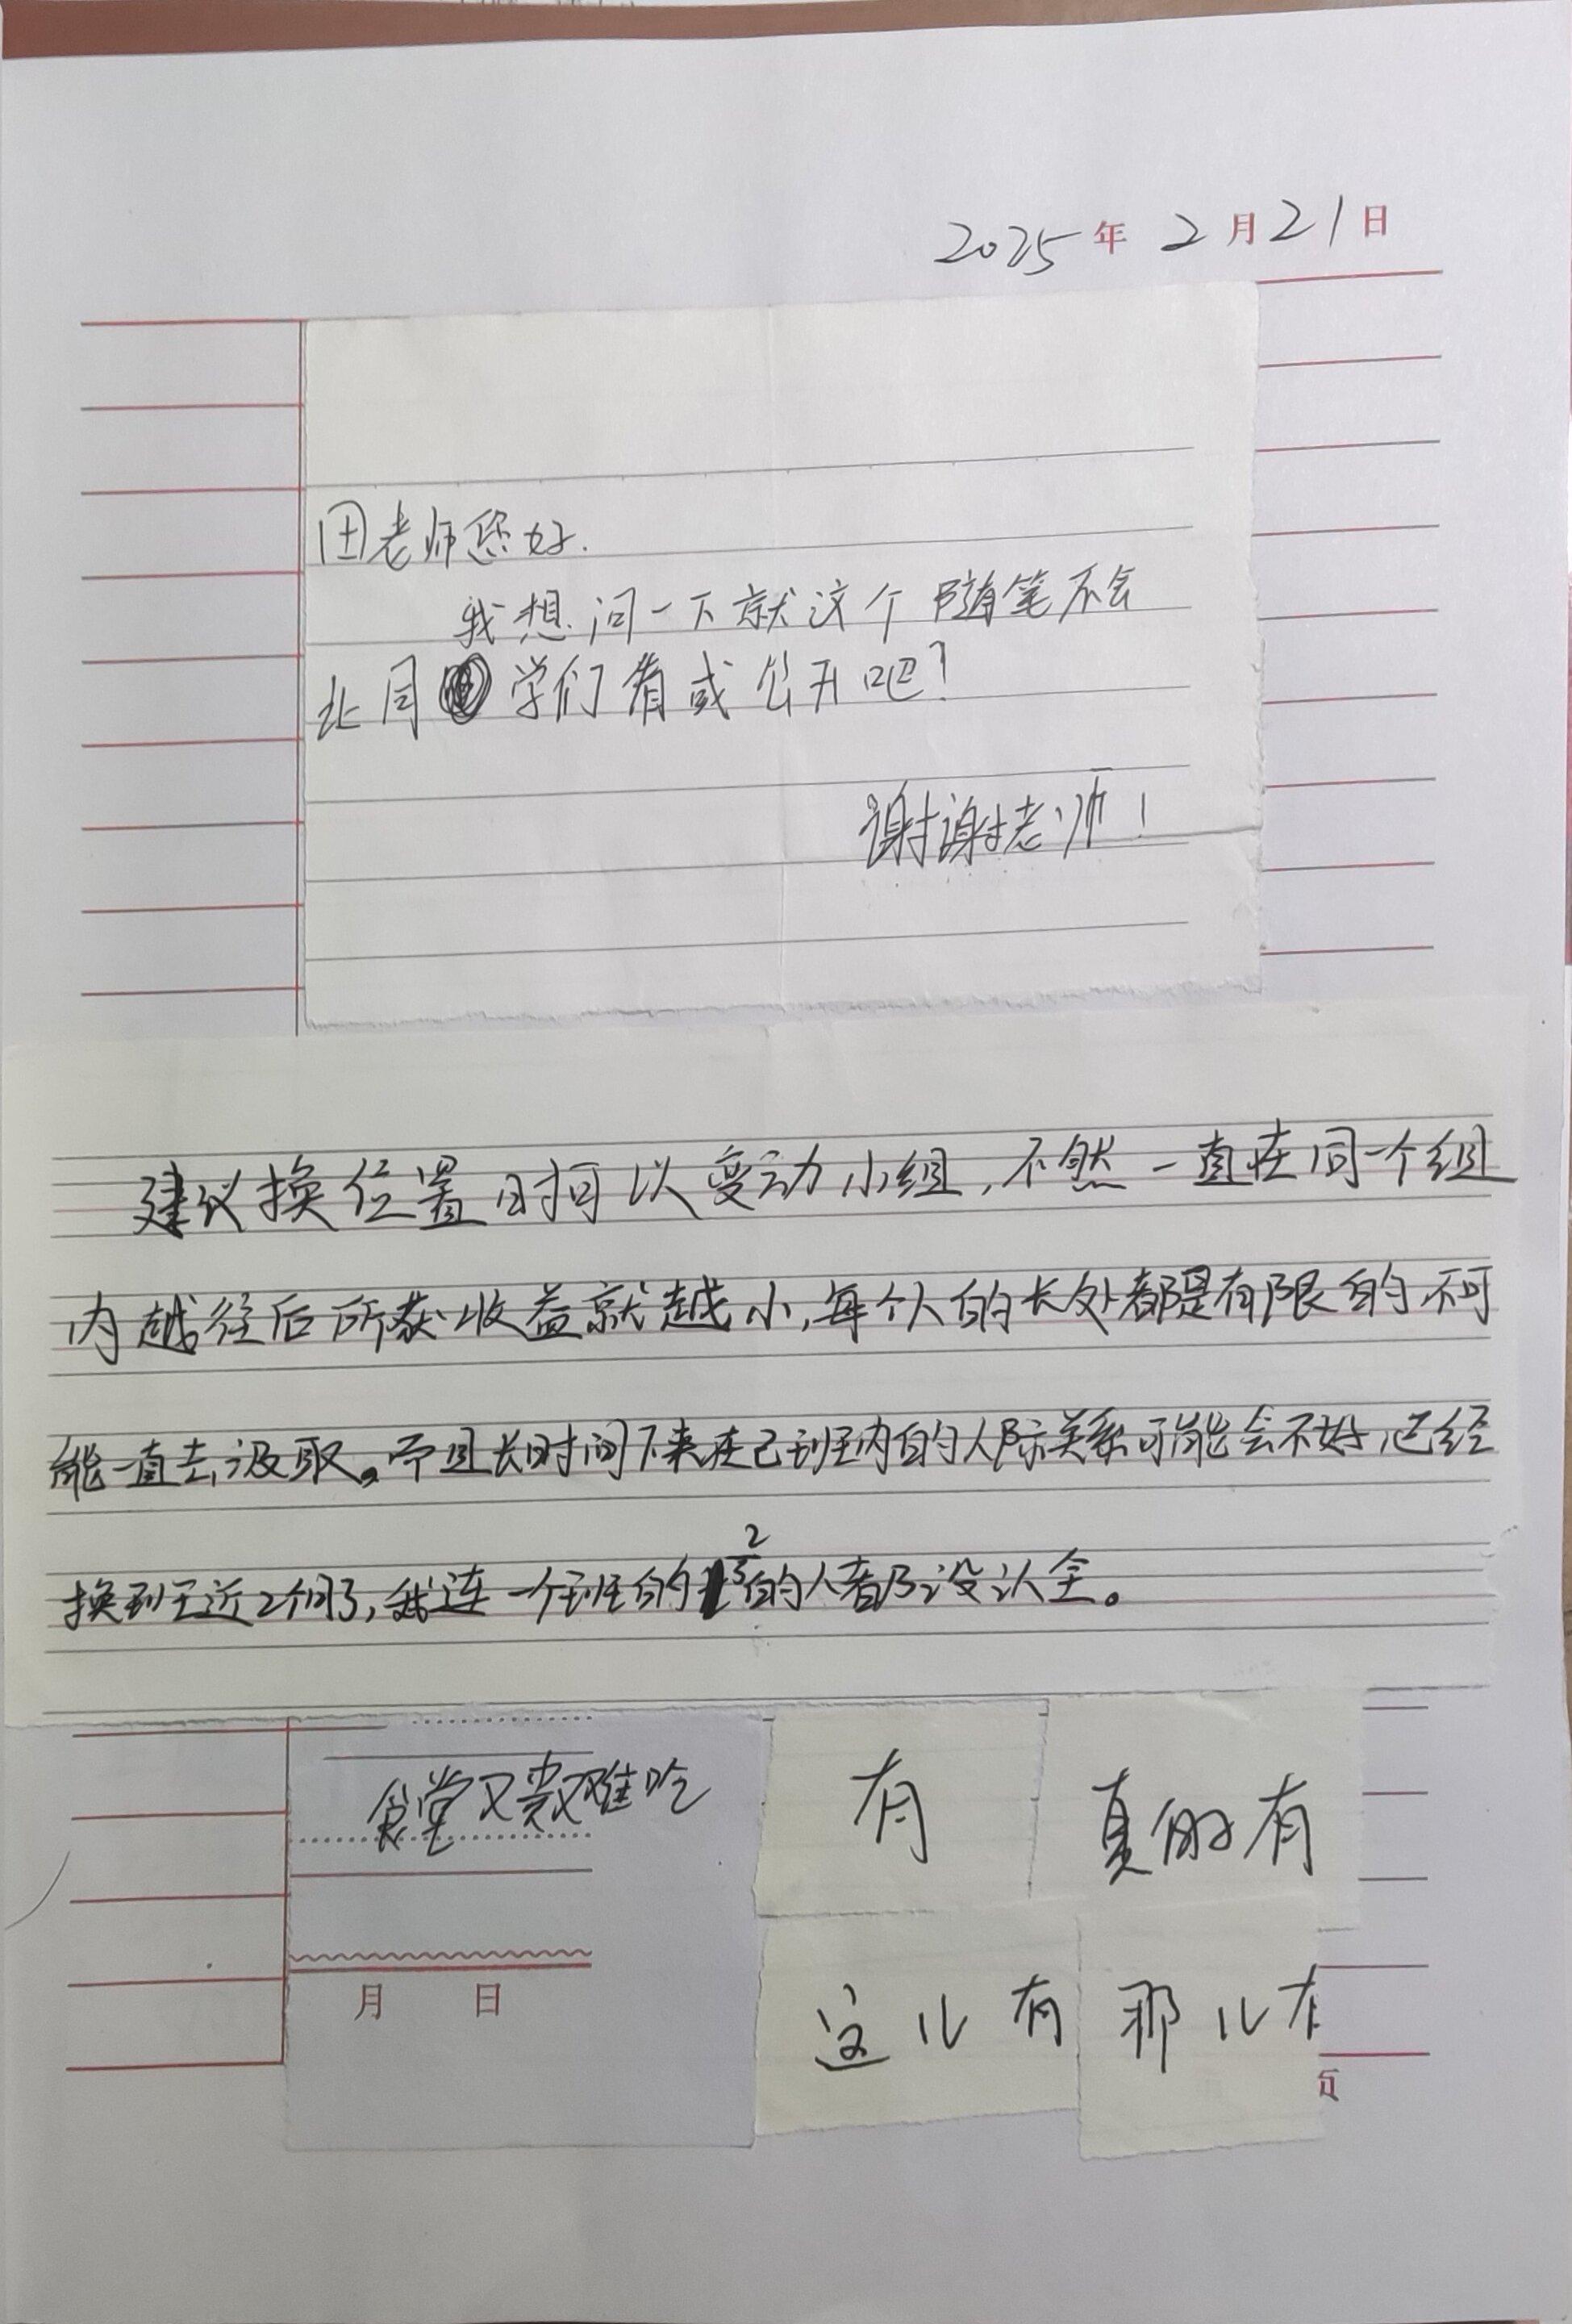 2025年2月21日
田老师您好.
我想问一下就这个随笔不会
让同学们看或公开吧？
谢谢老师！
建议换位置时可以变动小组，不然一直在同一个组
内越往后所获收益就越小，每个人的长处都是有限的不可
能一直去汲取。而且长时间下来在己班内的人际关系可能会不好，已经
换到至近2个月了，我连一个班的2/3的人都没认全。
食堂又贵又难吃
有
真的有
月 日
这儿有
那儿有
页